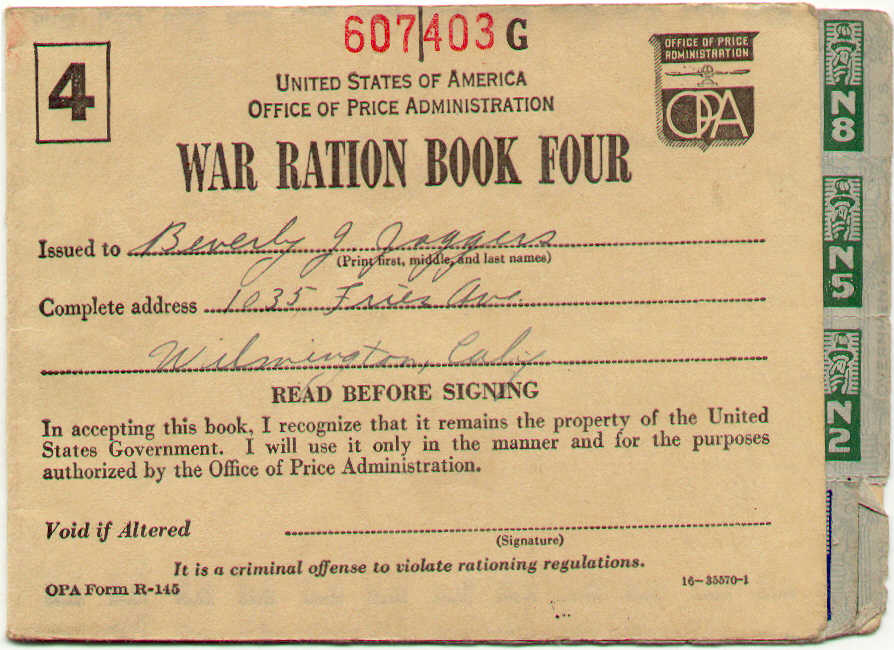 607403 G
4
OFFICE OF PRICE
ADMINISTRATION
OPA
UNITED STATES OF AMERICA
OFFICE OF PRICE ADMINISTRATION
WAR RATION BOOK FOUR
Issued to Beverly J. Joggers
(Print first, middle, and last names)
Complete address 1035 Fries Ave.
Wilmington, Calif
READ BEFORE SIGNING
In accepting this book, I recognize that it remains the property of the United
States Government. I will use it only in the manner and for the purposes
authorized by the Office of Price Administration.
Void if Altered
(Signature)
It is a criminal offense to violate rationing regulations.
OPA Form R-145
16-35570-1
N8
N5
N2